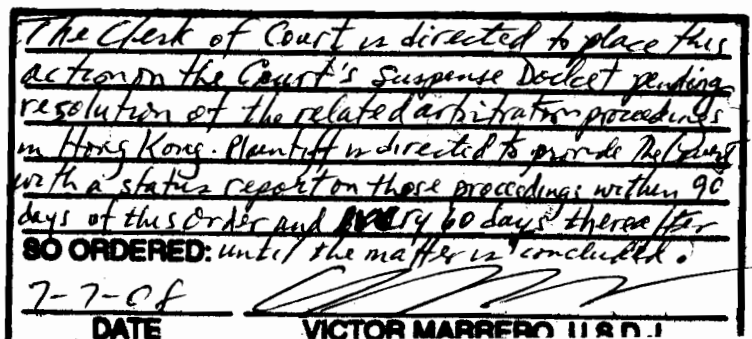 The Clerk of Court is directed to place this
action on the Court's Suspense Docket pending
resolution of the related arbitration proceedings
in Hong Kong. Plaintiff is directed to provide the Court
with a status report on those proceedings within 90
days of this Order and every 60 days thereafter
SO ORDERED: until the matter is concluded.
7-7-08
DATE VICTOR MARRERO, U.S.D.J.